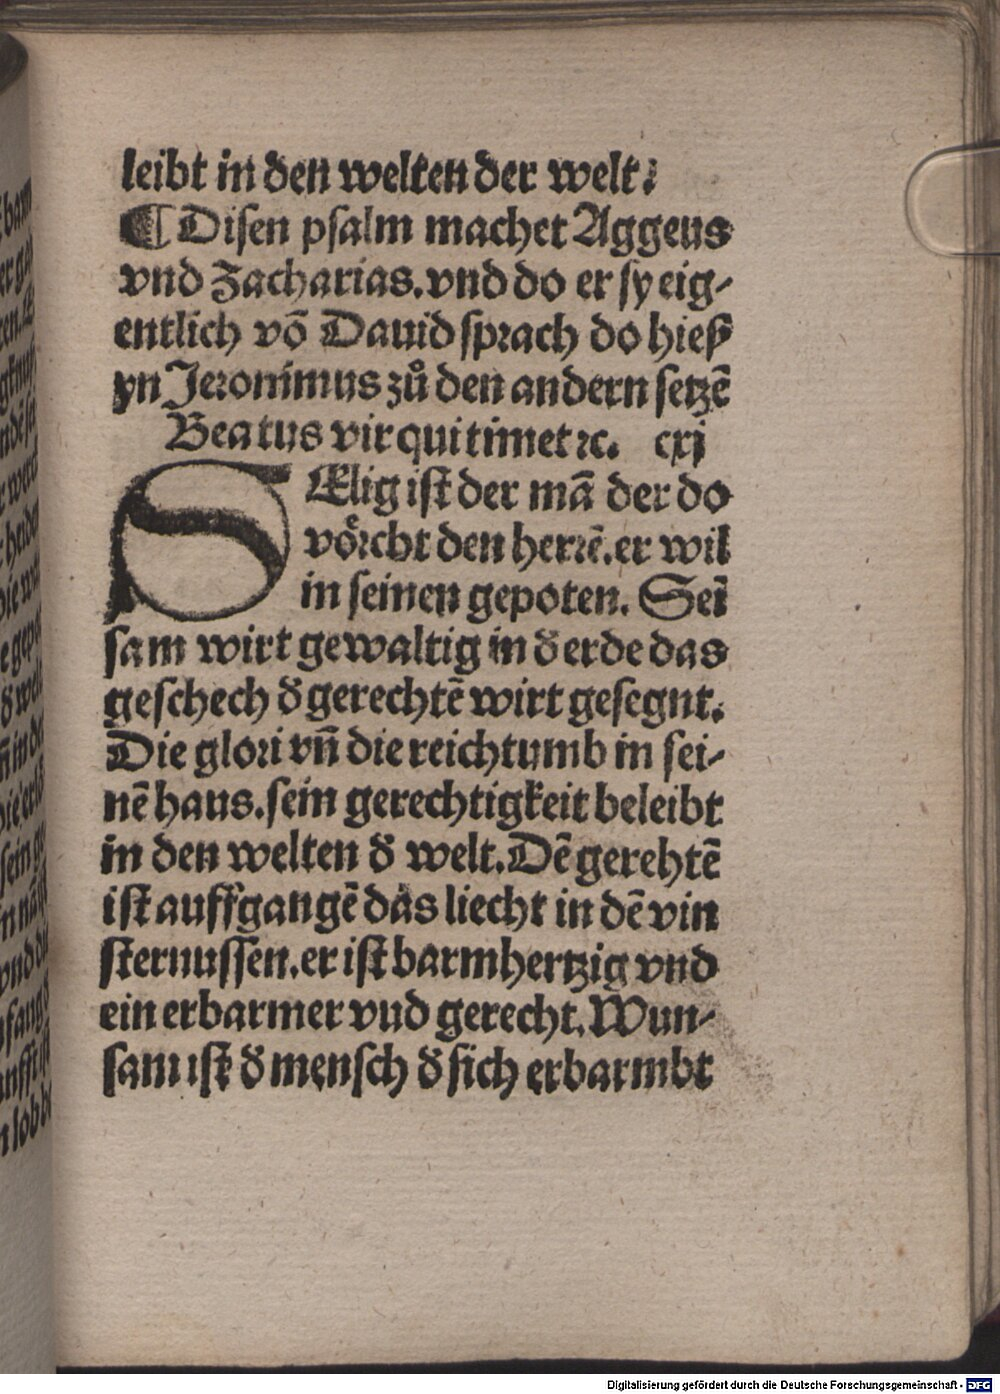 leibt in den welten der welt:
¶ Disen psalm machet Aggeus
vnd Zacharias. vnd do er sy eig-
entlich vō Dauid sprach do hieß
yn Jeronimus zů den andern setzē
Beatus vir qui timet ꝛc. cxj
SElig ist der mā der do
vöꝛcht den herꝛē. er wil
in seinen gepoten. Sei
sam wirt gewaltig in đ erde das
geschech đ gerechtē wirt gesegnt.
Die gloꝛi vn̄ die reichtumb in sei-
nē haus. sein gerechtigkeit beleibt
in den welten đ welt. Dē gerehtē
ist auffgangē das liecht in dē vin
sternussen. er ist barmhertzig vnd
ein erbarmer vud gerecht. Wun-
sam ist đ mensch đ sich erbarmbt
Digitalisierung gefördert durch die Deutsche Forschungsgemeinschaft - DFG